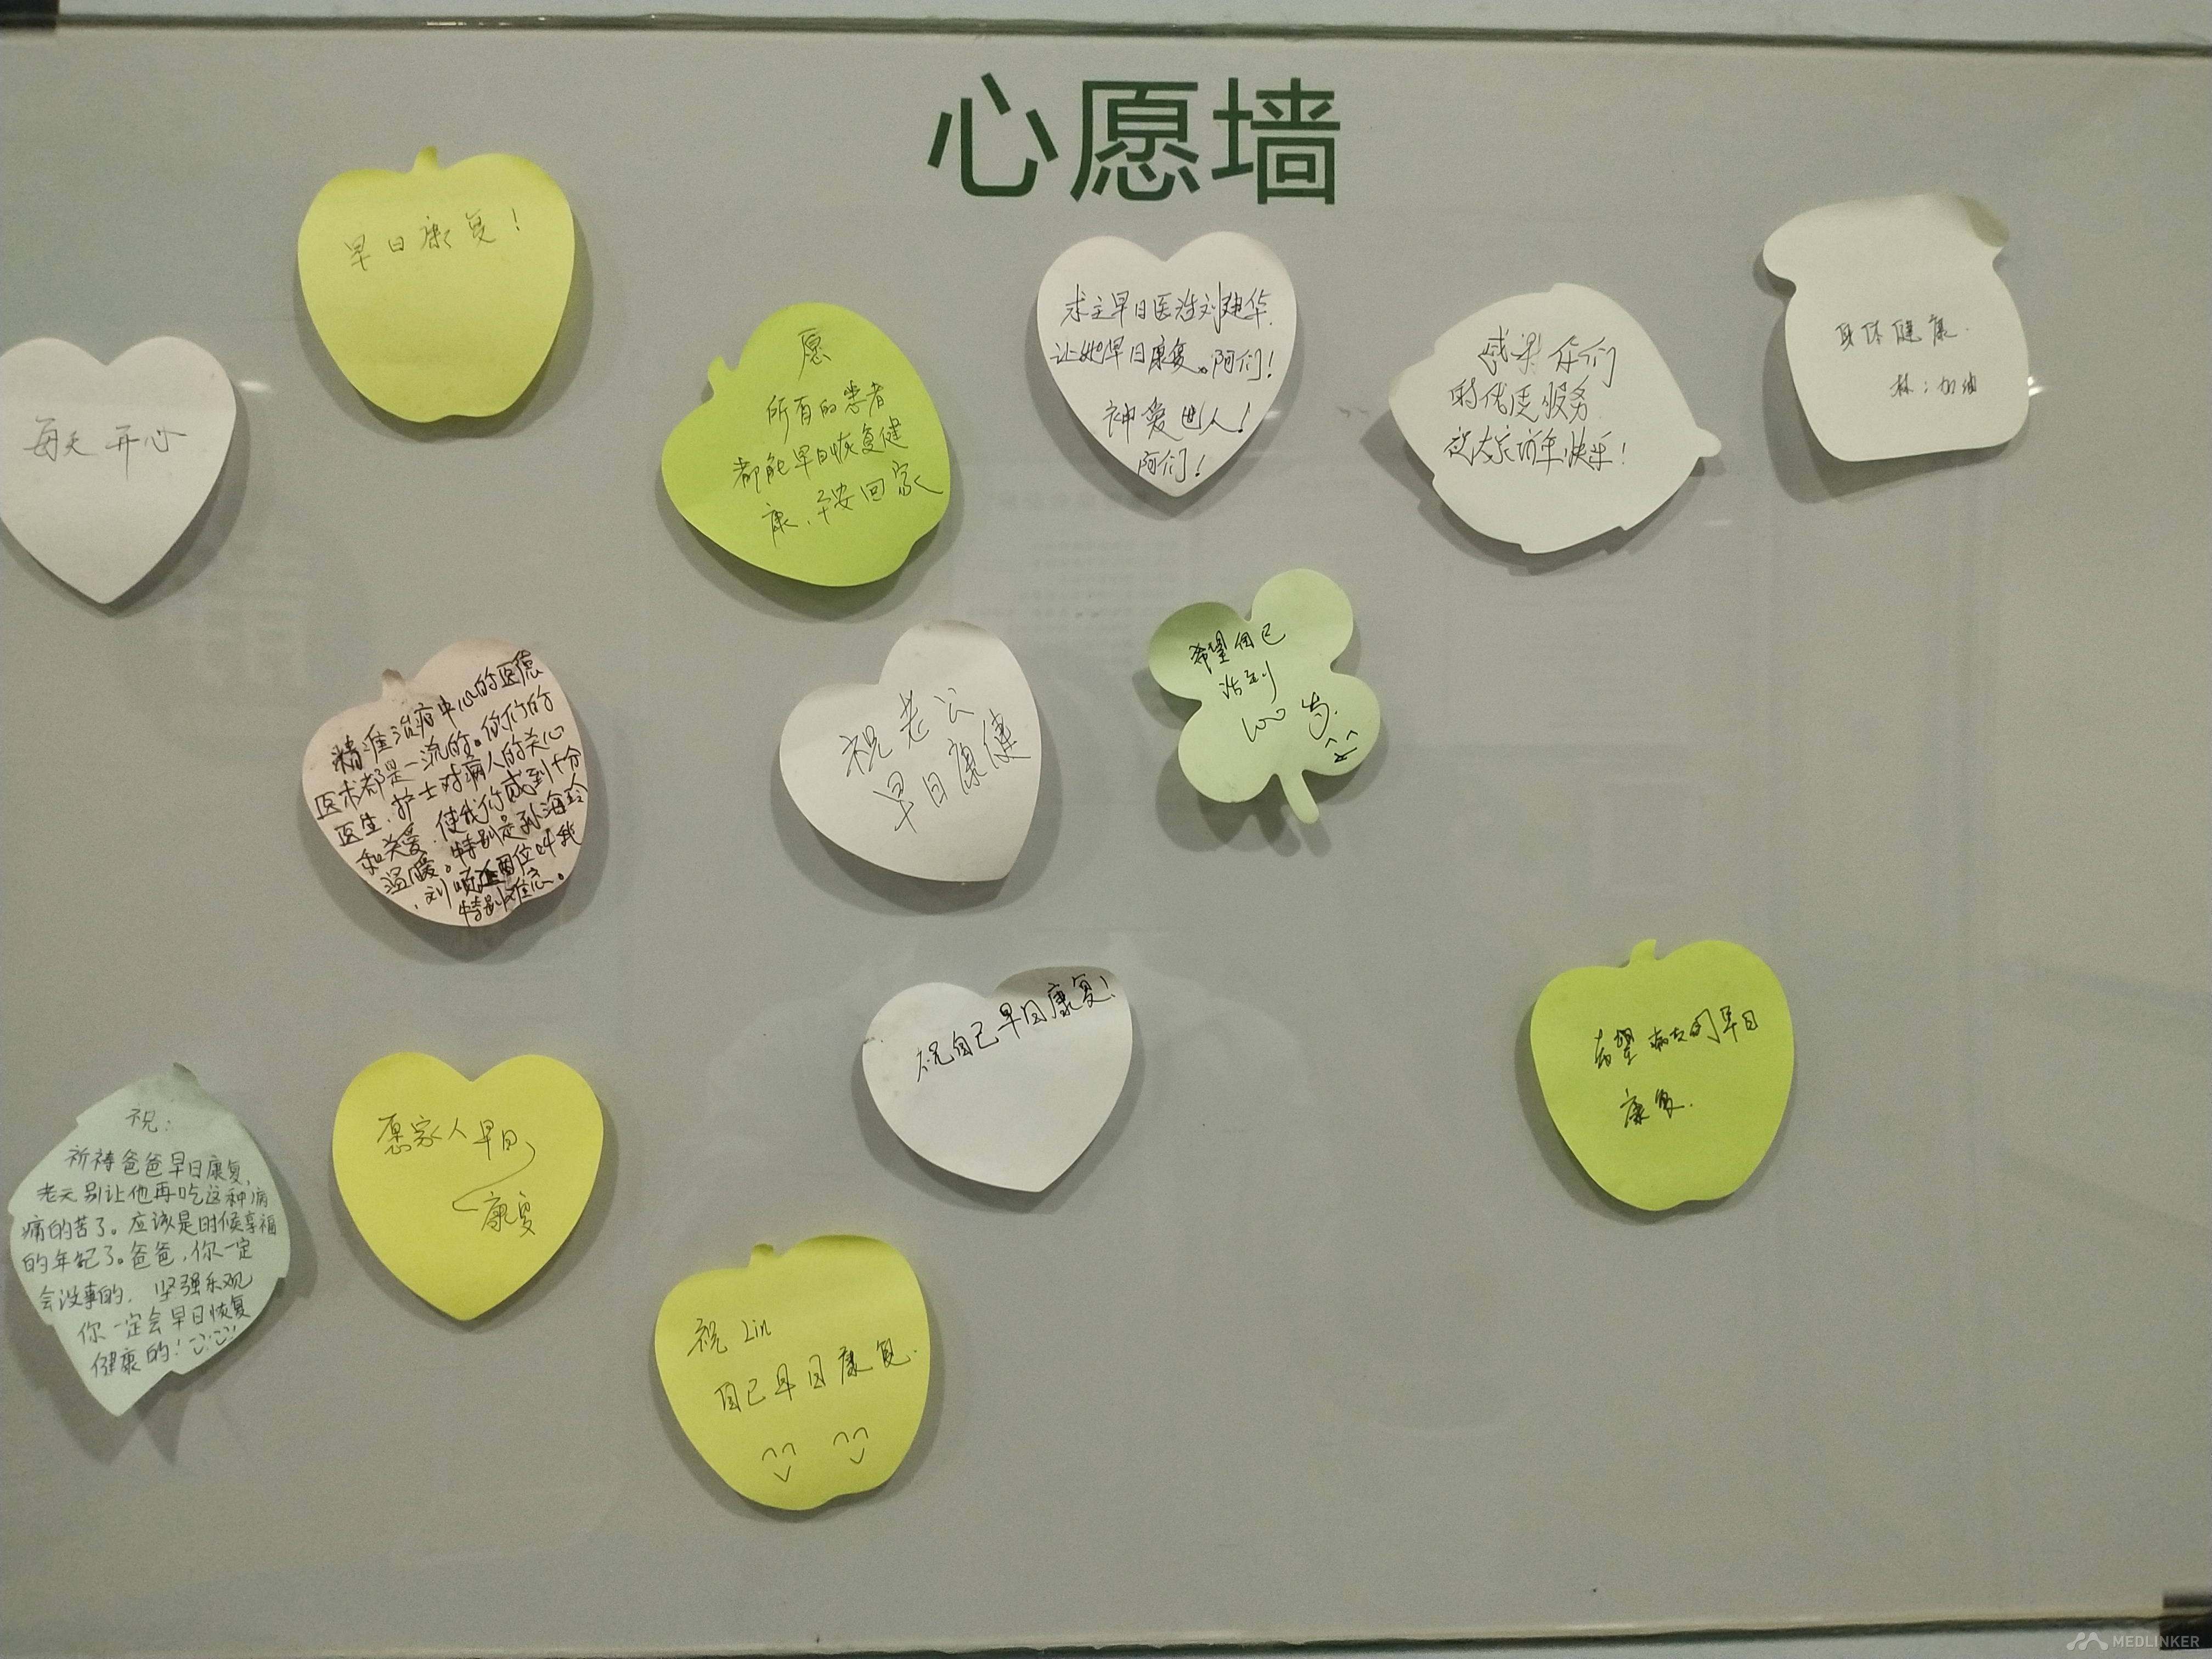 心愿墙
早日康复！
每天开心
愿
所有的患者
都能早日恢复健
康，平安回家
求主早日医治刘建华.
让她早日康复。阿们！
神爱世人！
阿们！
感染你们
的优质服务
祝大家新年快乐！
身体健康.
林：加油
精准治疗中心的医德
医术都是一流的。你们的
医生.护士对病人的关心
和关爱.使我们感到十分
温暖。特别是孙海玲
.刘 位叫我
特别难忘。
祝老公
早日康健
希望自己
活到
100岁.
祝自己早日康复！
希望病友们早日
康复.
祝：
祈祷爸爸早日康复,
老天别让他再吃这种病
痛的苦了。应该是时候享福
的年纪了。爸爸，你一定
会没事的， 坚强乐观
你一定会早日恢复
健康的！
愿家人早日
康复
祝 Lin
自己早日康复.
MEDLINKER